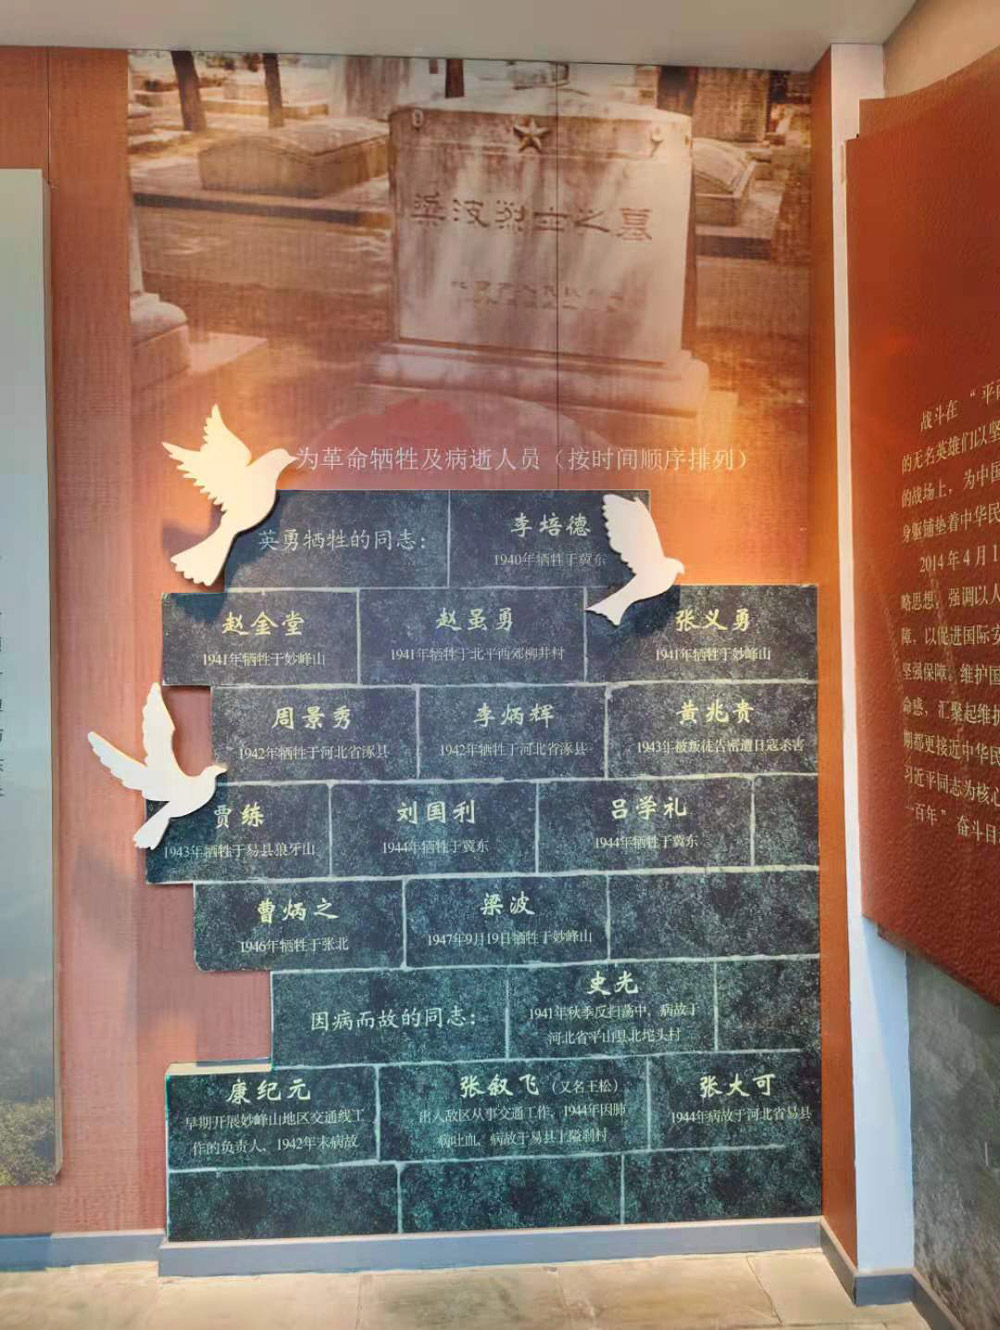 梁波烈士之墓
为革命牺牲及病逝人员（按时间顺序排列）
英勇牺牲的同志：
李培德
1940年牺牲于冀东
赵金堂
1941年牺牲于妙峰山
赵虽勇
1941年牺牲于北平西郊柳井村
张义勇
1941年牺牲于妙峰山
周景秀
1942年牺牲于河北省涿县
李炳辉
1942年牺牲于河北省涿县
黄兆贵
1943年被叛徒告密遭日寇杀害
贾练
1943年牺牲于易县狼牙山
刘国利
1944年牺牲于冀东
吕学礼
1944年牺牲于冀东
曹炳之
1946年牺牲于张北
梁波
1947年9月19日牺牲于妙峰山
因病而故的同志：
史光
1941年秋季反扫荡中，病故于
河北省平山县北坨头村
康纪元
早期开展妙峰山地区交通线工
作的负责人，1942年末病故
张叙飞（又名王松）
出入敌区从事交通工作，1944年因肺
病吐血，病故于易县上隘刹村
张大可
1944年病故于河北省易县
战斗在“平
的无名英雄们以坚
的战场上，为中国
身躯铺垫着中华民
2014年4月1
略思想，强调以人
障，以促进国际安
坚强保障。维护国
命感，汇聚起维护
期都更接近中华民
习近平同志为核心
一百年”奋斗目